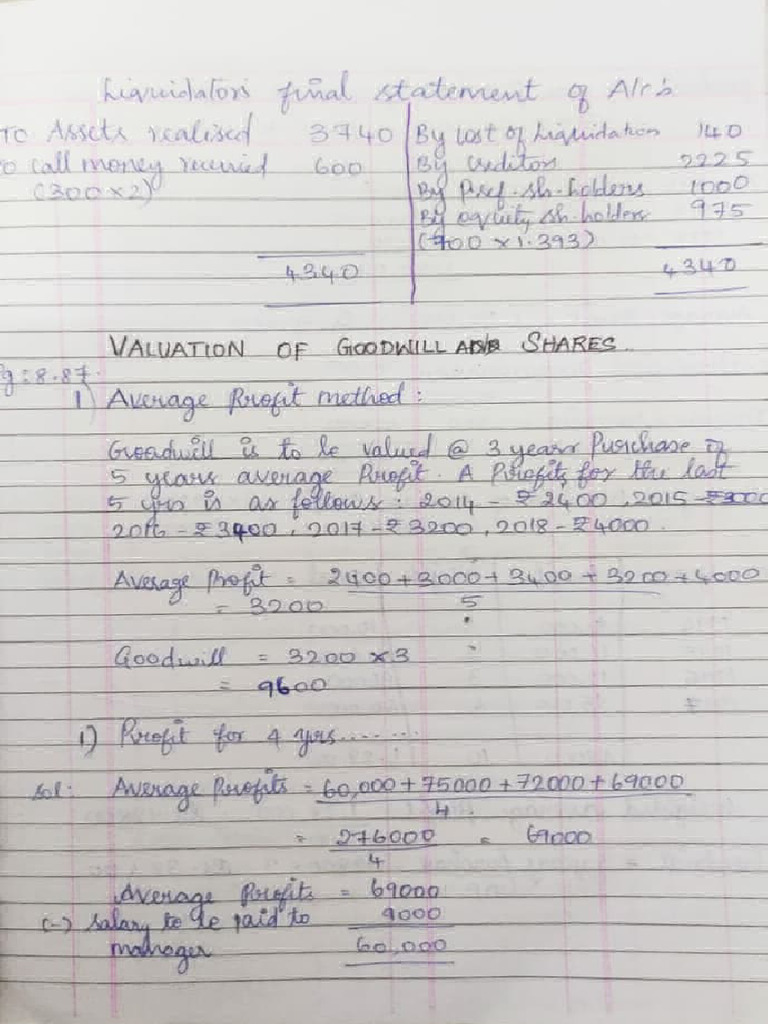 Liquidators final statement of A/cs
To Assets realised 3740 By cost of Liquidation 140
o call money received 600 By creditors 2225
(300 x 2) By Pref. sh. holders 1000
By equity sh. holders 975
(700 x 1.393)
4340 4340
VALUATION OF GOODWILL AND SHARES
g: 8.87.
1) Average Profit method:
Goodwill is to be valued @ 3 years Purchase of
5 years average Profit. A Profits for the last
5 yrs is as follows: 2014 - ₹2400, 2015 - ₹3000
2016 - ₹3400, 2017 - ₹3200, 2018 - ₹4000.
Average Profit = 2400 + 3000 + 3400 + 3200 + 4000
= 3200 5
Goodwill = 3200 x 3
= 9600
1) Profit for 4 yrs.......
Sol: Average Profits = 60,000 + 75000 + 72000 + 69000
4
= 276000 = 69000
4
Average Profits = 69000
(-) Salary to be paid to 9000
manager 60,000